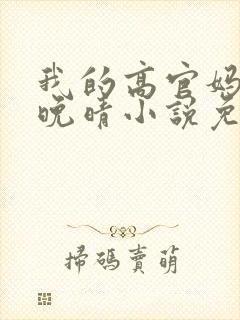 我的高官妈
晚晴小説免
掃碼賣萌